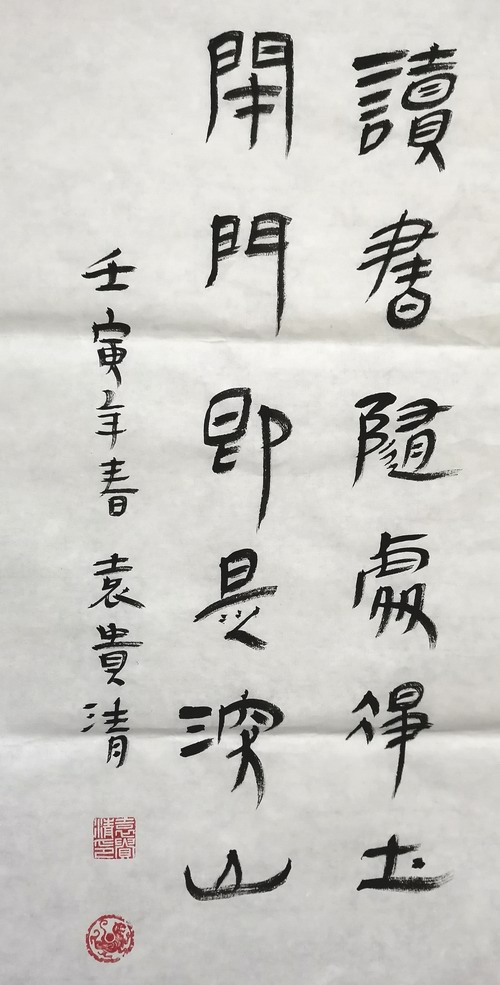 讀書隨處淨土
閉門即是深山
壬寅年春 袁貴清
袁貴清印